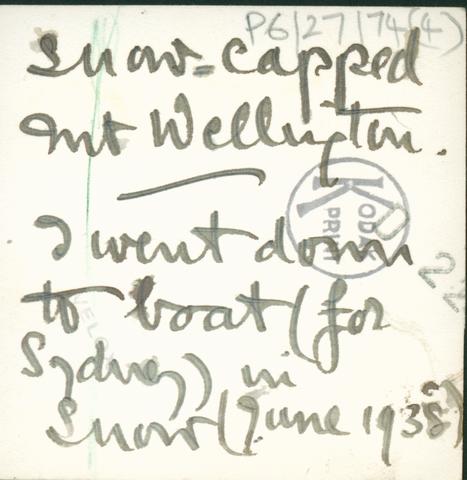 P6/27/74(4)
snow-capped
Mt Wellington.
I went down
to boat (for
Sydney) in
snow (June 1938)
KODAK
PRINT
VELOX
22